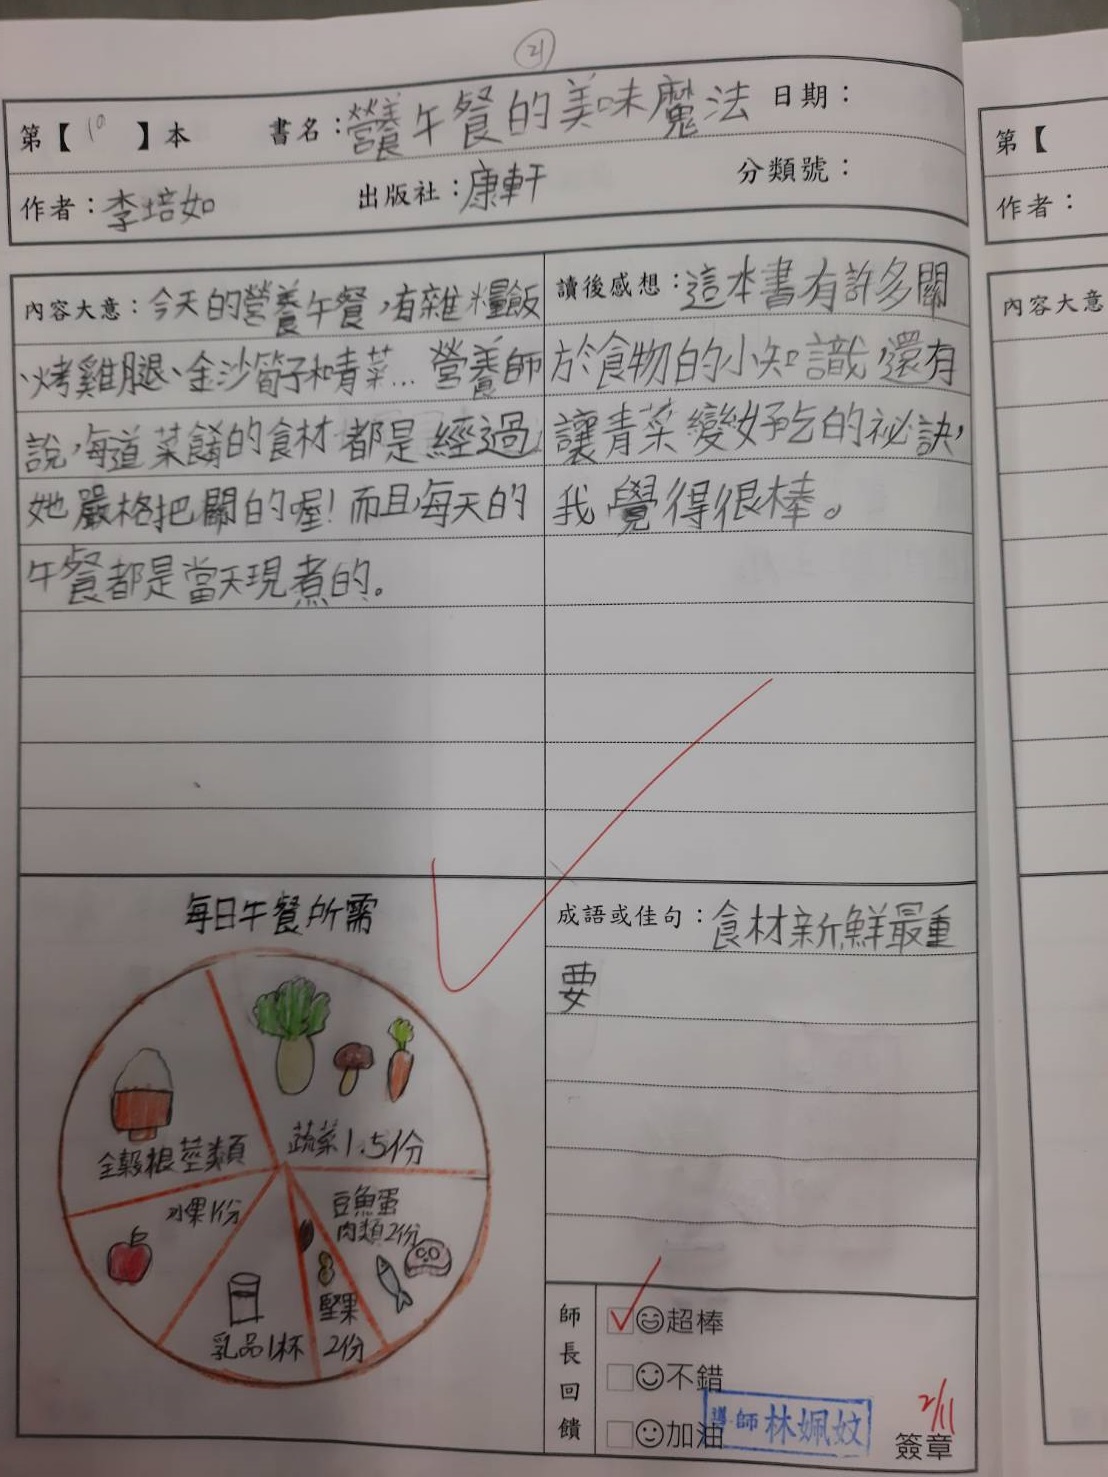 21
第【 10 】本 書名：營養午餐的美味魔法 日期：
作者：李培如 出版社：康軒 分類號：
內容大意：今天的營養午餐，有雜糧飯
、烤雞腿、金沙筍子和青菜…營養師
說，每道菜餚的食材都是經過
她嚴格把關的喔！而且，每天的
午餐都是當天現煮的。
讀後感想：這本書有許多關
於食物的小知識，還有
讓青菜變好吃的祕訣，
我覺得很棒。
每日午餐所需
蔬菜1.5份
全穀根莖類
水果1份
豆魚蛋
肉類2份
堅果
2份
乳品1杯
成語或佳句：食材新鮮最重
要
師長回饋
超棒
不錯
加油
導師 林姵妏
2/11
簽章
第【
作者：
內容大意